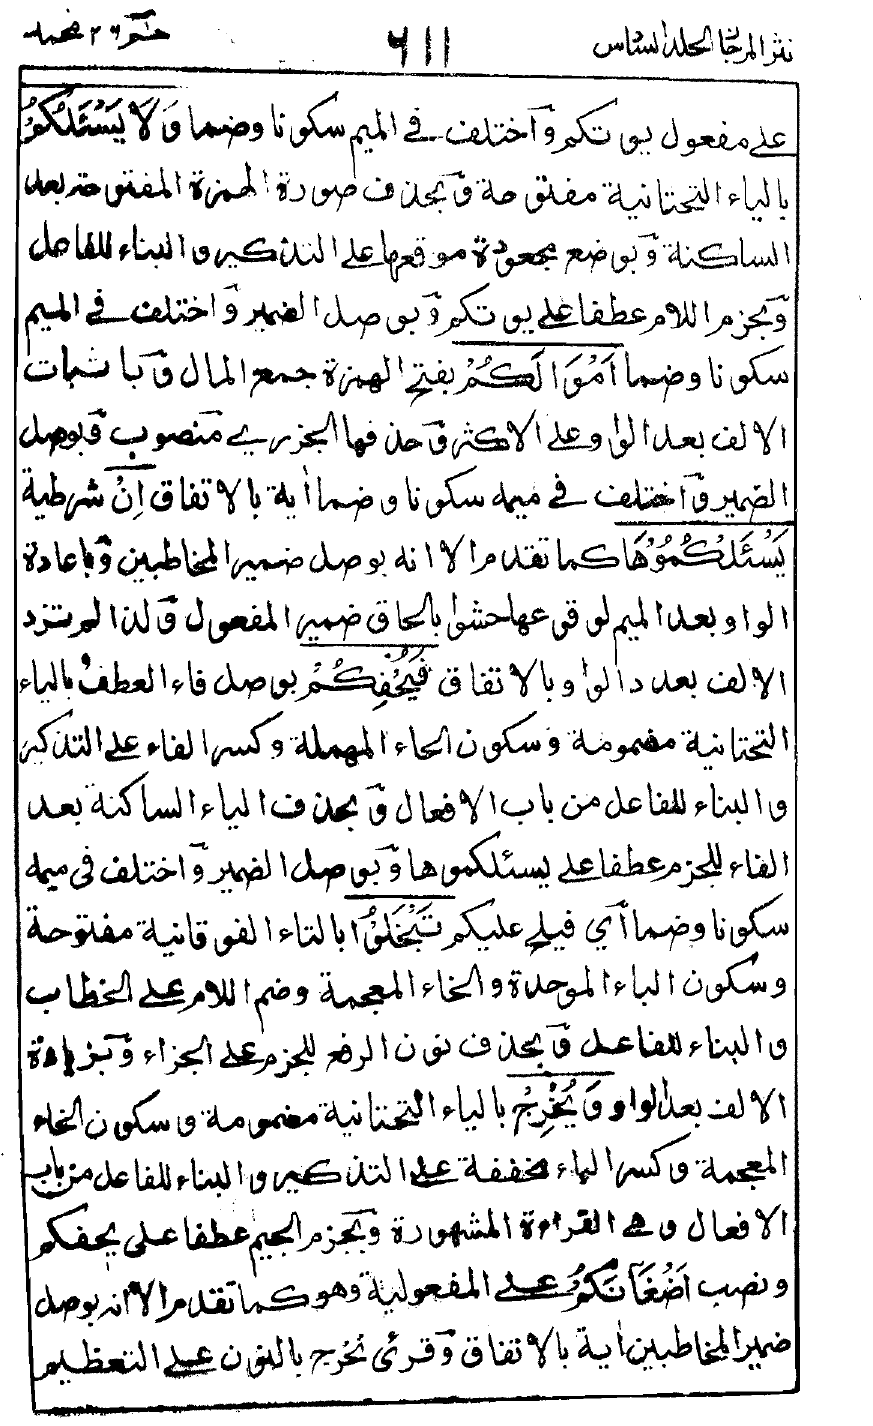 نثر المرجان الجلد السادس ٦١١ حٰم ٢٦ محمد
على مفعول يوتكم وٓاختلف فے الميم سكونا وضما وَلَا يَسْئَلْكُمْ
بالياء التحتانية مفتوحة وٓبحذف صورة الهمزة المفتوحة بعد
الساكنة وٓبوضع مجعودة موقعها على التذكير و البناء للفاعل
وٓبجزم اللام عطفا على يوتكم وٓبوصل الضمير وٓاختلف فے الميم
سكونا وضما اَمْوَالَكُمْ بفتح الهمزة جمع المال وٓباثبات
الالف بعد الواو على الاكثر وٓحذفها الجزرى منصوب وٓبوصل
الضمير وٓاختلف فے ميمه سكونا وضما اٰية بالاتفاق اِنْ شرطية
يَسْئَلْكُمُوْهَا كما تقدم الا انه بوصل ضمير المخاطبين وٓباعادة
الواو بعد الميم لوقوعها حشوا بالحاق ضمير المفعول وٓلذا لم تزد
الالف بعد الواو بالاتفاق فَيُحْفِكُمْ بوصل فاء العطف وٓبالياء
التحتانية مضمومة وسكون الحاء المهملة وكسر الفاء على التذكير
و البناء للفاعل من باب الافعال وٓبحذف الياء الساكنة بعد
الفاء للجزم عطفا على يسئلكموها وٓبوصل الضمير وٓاختلف فى ميمه
سكونا وضما اٰي فيلے عليكم تَبْخَلُوْا بالتاء الفوقانية مفتوحة
وسكون الباء الموحدة والخاء المعجمة وضم اللام على الخطاب
و البناء للفاعل وٓبحذف نون الرفع للجزم على الجزاء وٓبزيادة
الالف بعد الواو وَيُخْرِجْ بالياء التحتانية مضمومة وسكون الخاء
المعجمة وكسر الراء مخففة على التذكير و البناء للفاعل من باب
الافعال وهى القراءة المشهورة وٓبجزم الجيم عطفا على يحفكم
ونصب اَضْغَانَكُمْ على المفعولية وهو كما تقدم الا انه بوصل
ضمير المخاطبين اٰية بالاتفاق وٓقرئ نخرج بالنون على التعظيم